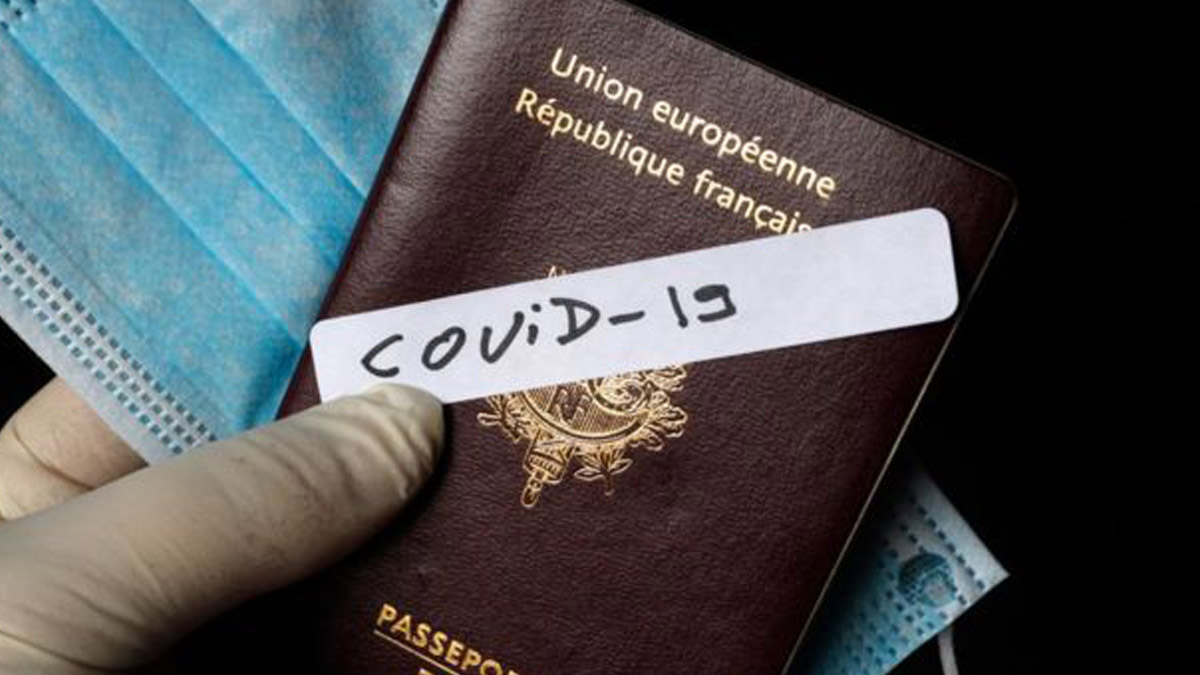 Union européenne
République français
COViD-19
RF
PASSEPO